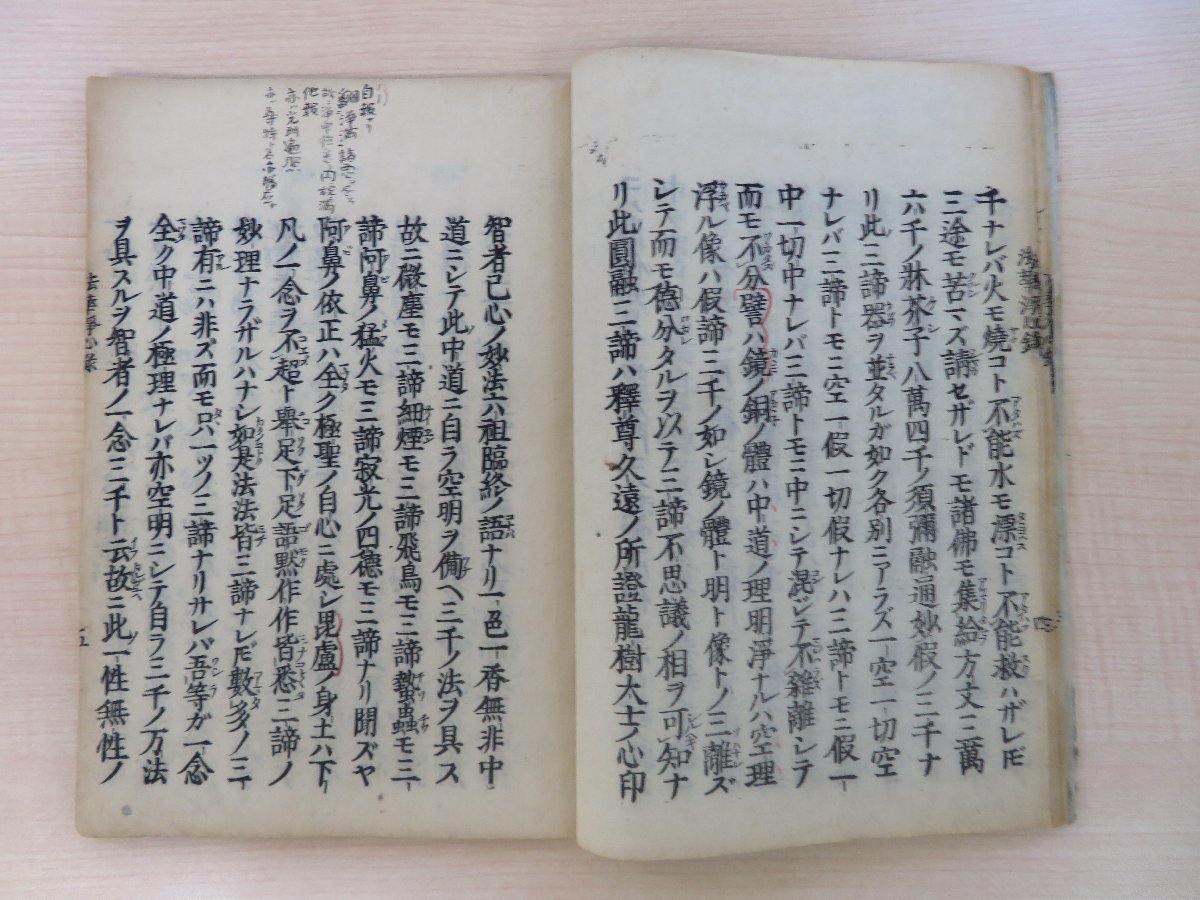 千ナレバ火モ燒コト不能水モ漂コト不能救ハザレ𪜈
三途モ苦マズ請セザレドモ諸佛モ集給方丈ニ萬
六千ノ牀芥子八萬四千ノ須彌融通妙假ノ三千ナ
リ此三諦器ヲ並タルガ如ク各別ニアラズ一空一切空
ナレバ三諦トモニ空一假一切假ナレハ三諦トモニ假一
中一切中ナレバ三諦トモニ中ニシテ混シテ不雜離レテ
而モ不分譬ハ鏡ノ銅ノ體ハ中道ノ理明淨ナルハ空理
浮ル像ハ假諦三千ノ如シ鏡ノ體ト明ト像トノ三離ズ
シテ而モ德分タルヲ以テ三諦不思議ノ相ヲ可知ナ
リ此圓融三諦ハ釋尊久遠ノ所證龍樹大士ノ心印
智者己心ノ妙法六祖臨終ノ語ナリ一色一香無非中
道ニシテ此中道ニ自ラ空明ヲ備ヘ三千ノ法ヲ具ス
故ニ微塵モ三諦細煙モ三諦飛鳥モ三諦蟄蟲モ三
諦阿鼻ノ猛火モ三諦寂光ノ四德モ三諦ナリ聞ズヤ
阿鼻ノ依正ハ全ク極聖ノ自心ニ處シ毘盧ノ身土ハ下
凡ノ一念ヲ不超ト舉足下足語黙作作皆悉三諦ノ
妙理ナラザルハナシ如是法法皆三諦ナレ𪜈數多ノ三
諦有ニハ非ズ而モ只一ツノ三諦ナリサレバ吾等ガ一念
全ク中道ノ極理ナレバ亦空明ニシテ自ラ三千ノ万法
ヲ具スルヲ智者ノ一念三千ト云故ニ此一性無性ノ
五